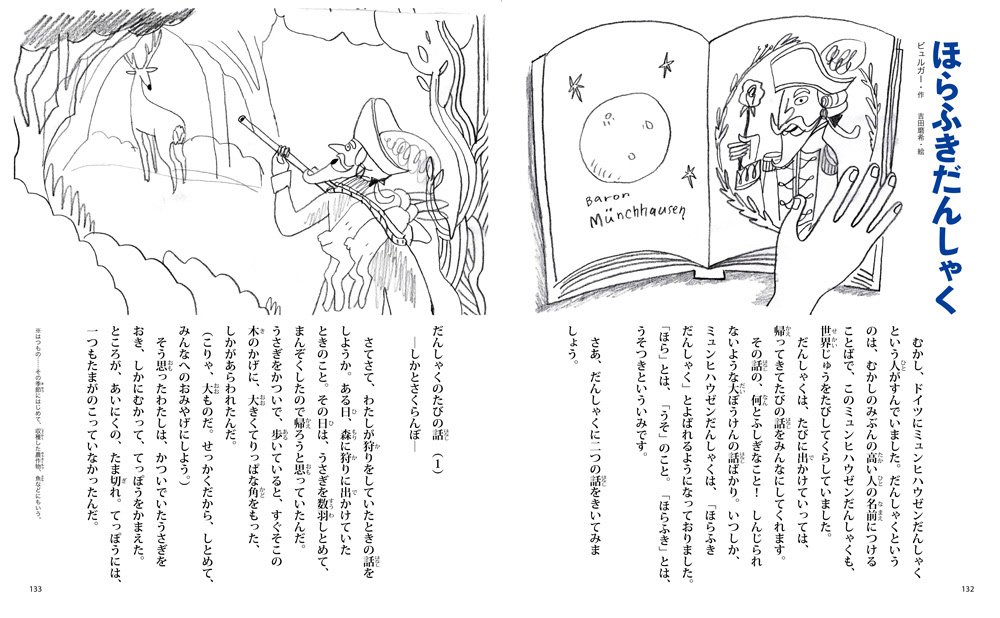 ほらふきだんしゃく
ビュルガー・作　吉田磨希・絵
Baron
Münchhausen
むかし、ドイツにミュンヒハウゼンだんしゃく
という人がすんでいました。だんしゃくという
のは、むかしのみぶんの高い人の名前につける
ことばで、このミュンヒハウゼンだんしゃくも、
世界じゅうをたびしてくらしていました。
だんしゃくは、たびに出かけていっては、
帰ってきてたびの話をみんなにしてくれます。
その話の、何とふしぎなこと！　しんじられ
ないような大ぼうけんの話ばかり。いつしか、
ミュンヒハウゼンだんしゃくは、「ほらふき
だんしゃく」とよばれるようになっておりました。
「ほら」とは、「うそ」のこと。「ほらふき」とは、
うそつきといういみです。
さあ、だんしゃくに二つの話をきいてみま
しょう。
132
だんしゃくのたびの話（１）
――しかとさくらんぼ――
さてさて、わたしが狩りをしていたときの話を
しようか。ある日、森に狩りに出かけていた
ときのこと。その日は、うさぎを数羽しとめて、
まんぞくしたので帰ろうと思っていたんだ。
うさぎをかついで、歩いていると、すぐそこの
木のかげに、大きくてりっぱな角をもった、
しかがあらわれたんだ。
（こりゃ、大ものだ。せっかくだから、しとめて、
みんなへのおみやげにしよう。）
そう思ったわたしは、かついでいたうさぎを
おき、しかにむかって、てっぽうをかまえた。
ところが、あいにくの、たま切れ。てっぽうには、
一つもたまがのこっていなかったんだ。
※はつもの……その季節にはじめて、収穫した農作物、魚などにもいう。
133